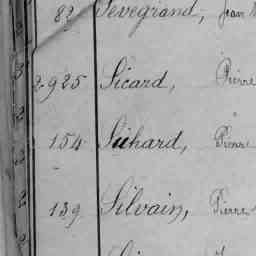 82 Sevegrand, Jean
2925 Sicard, Pierre
154 Sichard, Pierre
139 Silvain, Pierre